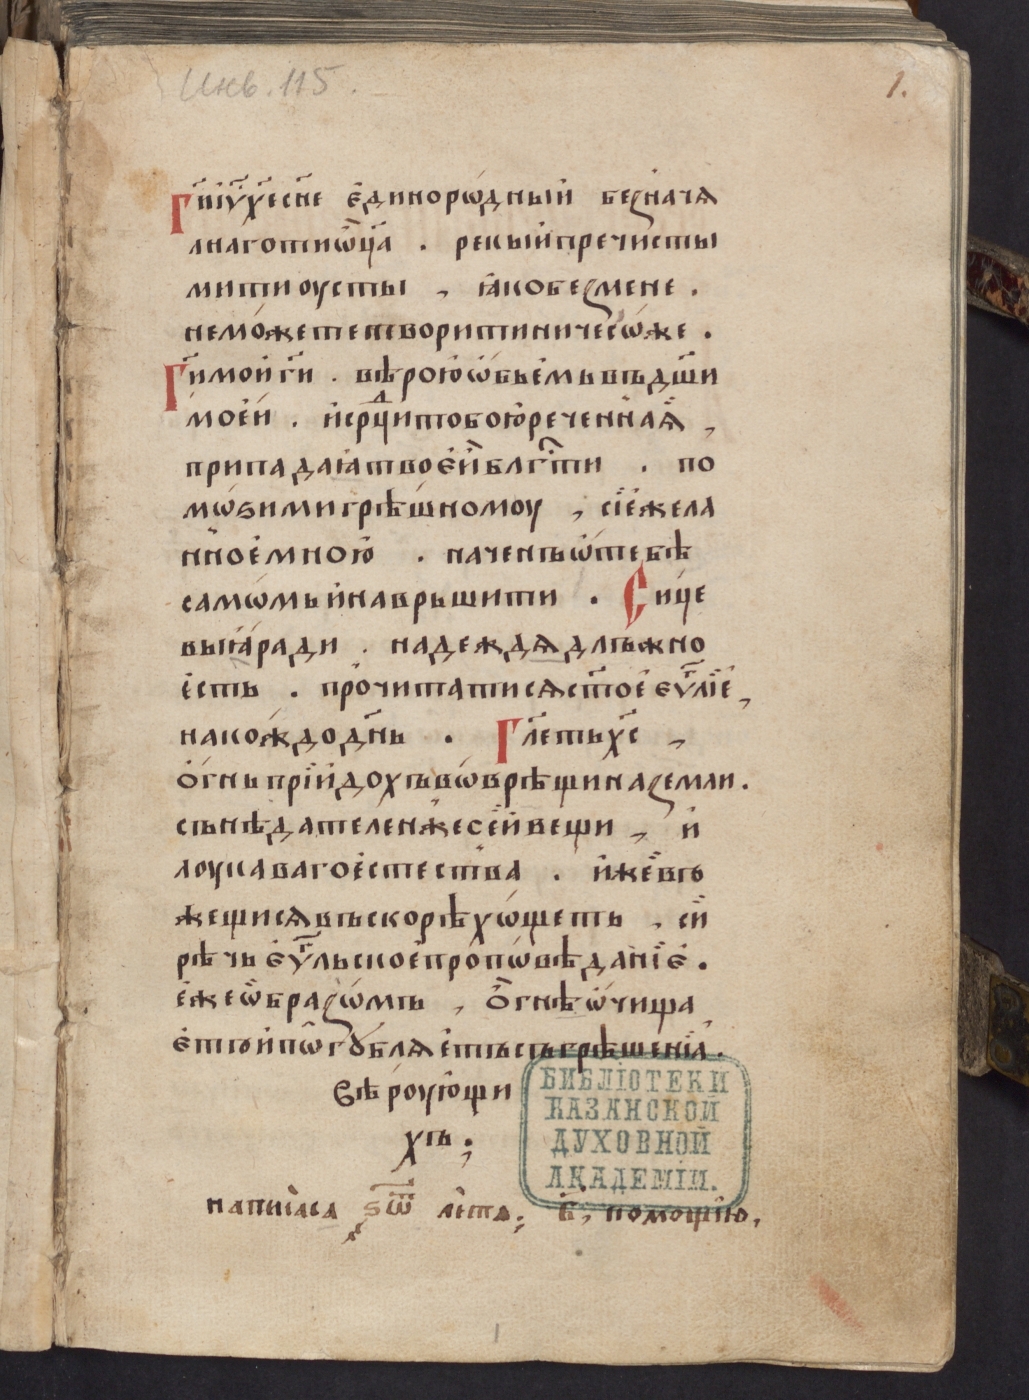 Инв. 115.
1.
Гн҃іі҃ух҃есн҃е единоро́дный безнача
лнаготиѿц҃а . рекыйпречисты
митиоусты , ꙗкобезмене .
неможететворитиничесѡже .
Гп҃имойгн҃и . вѣроюѡбьемьвъдш҃и
моей . исрдц҃итобоюреченнаѧ ,
припадаꙗтвоейблг҃ти . по
мѡзимигрѣшномоу , сіежела
нноемною . наченъѿтебѣ
самѡмьинаврьшити . Сице
выꙗради . надеждѧдлъжно
есть . прочитатисѧст҃оееѵ҃ліе ,
накождодн҃ь . Гл҃етьх҃с ,
огньпріидохъвѡврѣщиназемли .
сънѣдателенжесейвещи , и
лоукавагоестества . ижевъ
жещисѧвъскорѣхѡщеть . сіи
рѣчьеѵ҃льскоепропѡвѣданіе .
ежеѡбразѡмъ , огнѣѡчища
етъипѡгꙋблѧетъсъгрѣшеніа .
Вѣроующи
хъ .
написаса ҂ѕѿ лѣта , б҃ , помощію ,
БИБЛІОТЕКИ
КАЗАНСКОЙ
ДУХОВНОЙ
АКАДЕМІИ.